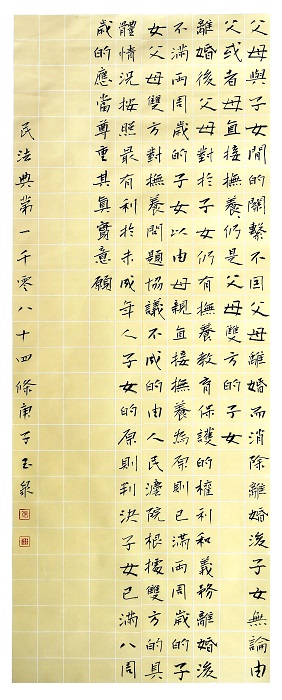 父母與子女間的關繫不因父母離婚而消除離婚後子女無論由
父或者母直接撫養仍是父母雙方的子女
離婚後父母對於子女仍有撫養教育保護的權利和義務離婚後
不滿兩周歲的子女以由母親直接撫養為原則已滿兩周歲的子
女父母雙方對撫養問題協議不成的由人民灋院根據雙方的具
體情況按照最有利於未成年人子女的原則判決子女已滿八周
歲的應當尊重其真實意願
民法典第一千零八十四條庚子玉泉